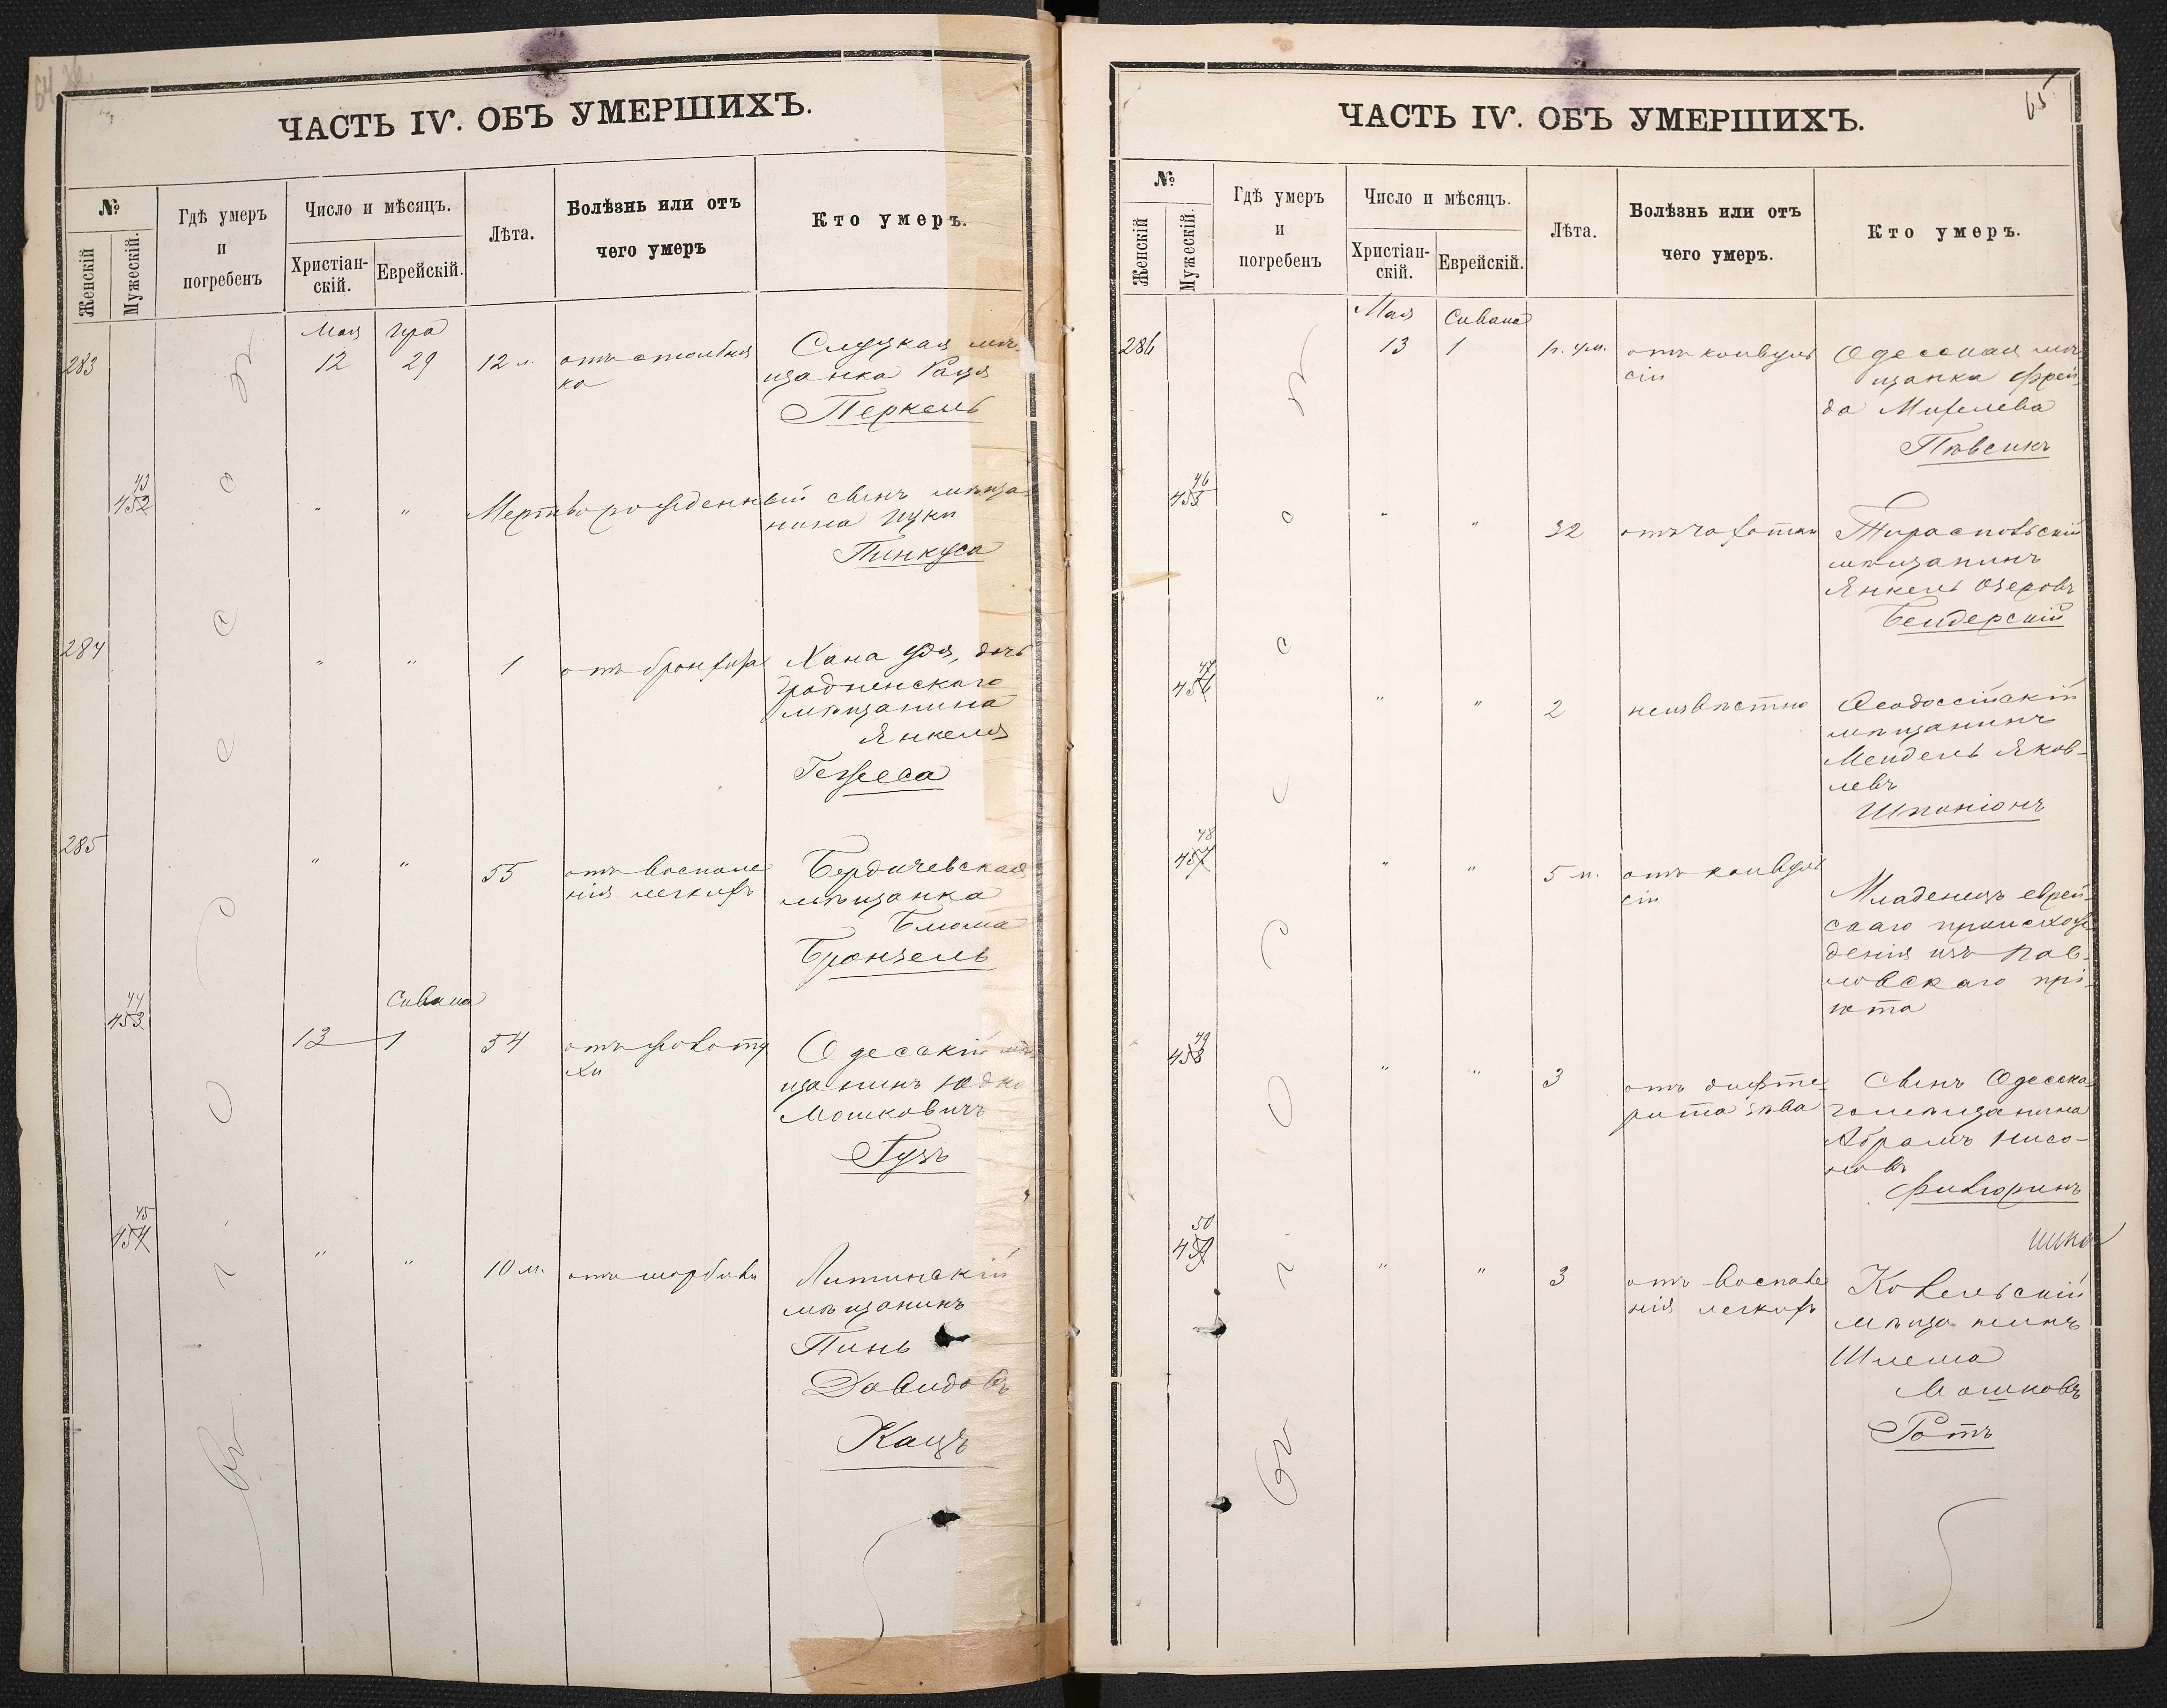 64
ЧАСТЬ IV. ОБЪ УМЕРШИХЪ.
№
Женскій
Мужескій.
Гдѣ умеръ
и
погребенъ
Число и мѣсяцъ.
Христіан-
скій.
Еврейскій.
Лѣта.
Болѣзнь или отъ
чего умеръ
Кто умеръ.
Мая
Іра
283
12
29
12 л.
отъ столбня
ка
Слуцкая мѣ-
щанка
Перкель
43
452
"
"
Мертворожденный сынъ мѣща-
нина Ицки
Пинкуса
284
"
"
1
отъ бронхита
Хана Удя, дочь
Гродненскаго
мѣщанина
Янкеля
Гежеса
285
"
"
55
отъ воспале
нія легкихъ
Бердичевская
мѣщанка
Блюма
Бронзель
Сивана
44
453
13
1
54
отъ
Одесскій мѣ-
щанинъ Юдко
Мошковичъ
Гузъ
45
454
"
"
10 м.
Литинскій
мѣщанинъ
Пинь
Давидовъ
Кацъ
Въ г. Одессѣ
65
ЧАСТЬ IV. ОБЪ УМЕРШИХЪ.
№
Женскій
Мужескій.
Гдѣ умеръ
и
погребенъ
Число и мѣсяцъ.
Христіан-
скій.
Еврейскій.
Лѣта.
Болѣзнь или отъ
чего умеръ.
Кто умеръ.
Мая
Сивана
286
13
1
1 г. 4 м.
отъ конвуль
сіи
Одесская мѣ
щанка Фрей-
да Михелева
Пѣвсикъ
46
455
"
"
32
отъ чахотки
Тираспольскій
мѣщанинъ
Янкель Озеровъ
Бендерскій
47
456
"
"
2
неизвѣстно
Ѳеодосійскій
мѣщанинъ
Мендель Яков-
левъ
Шпаніонъ
48
457
"
"
5 м.
отъ конвуль
сіи
Младенецъ еврей-
скаго происхож
денія изъ Пав-
ловскаго прі-
юта
49
458
"
"
3
отъ дифте-
рита зѣва
Сынъ Одесска-
го мѣщанина
Абрамъ Нисо-
новъ
Фивюринъ
50
459
"
"
3
отъ воспале
нія легкихъ
Ковельскій
мѣщанинъ
Шлема
Мошковъ
Ротъ
Въ г. Одессѣ